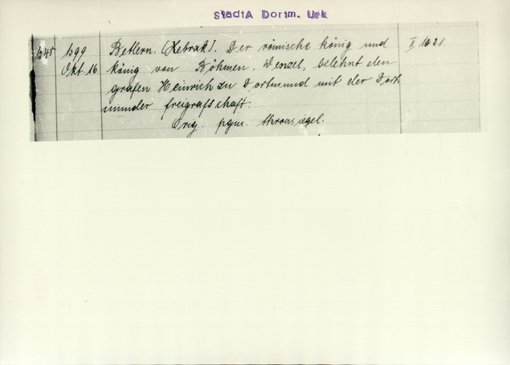 StadtA Dortm. Urk
1399
Okt. 16.
Bettlern. (Zebrak). Der römische könig und
könig von Böhmen, Wenzel, belehnt den
grafen Heinrich zu Dortmund mit der Dort
munder freigrafschaft.
Orig. pgm. thronsiegel.